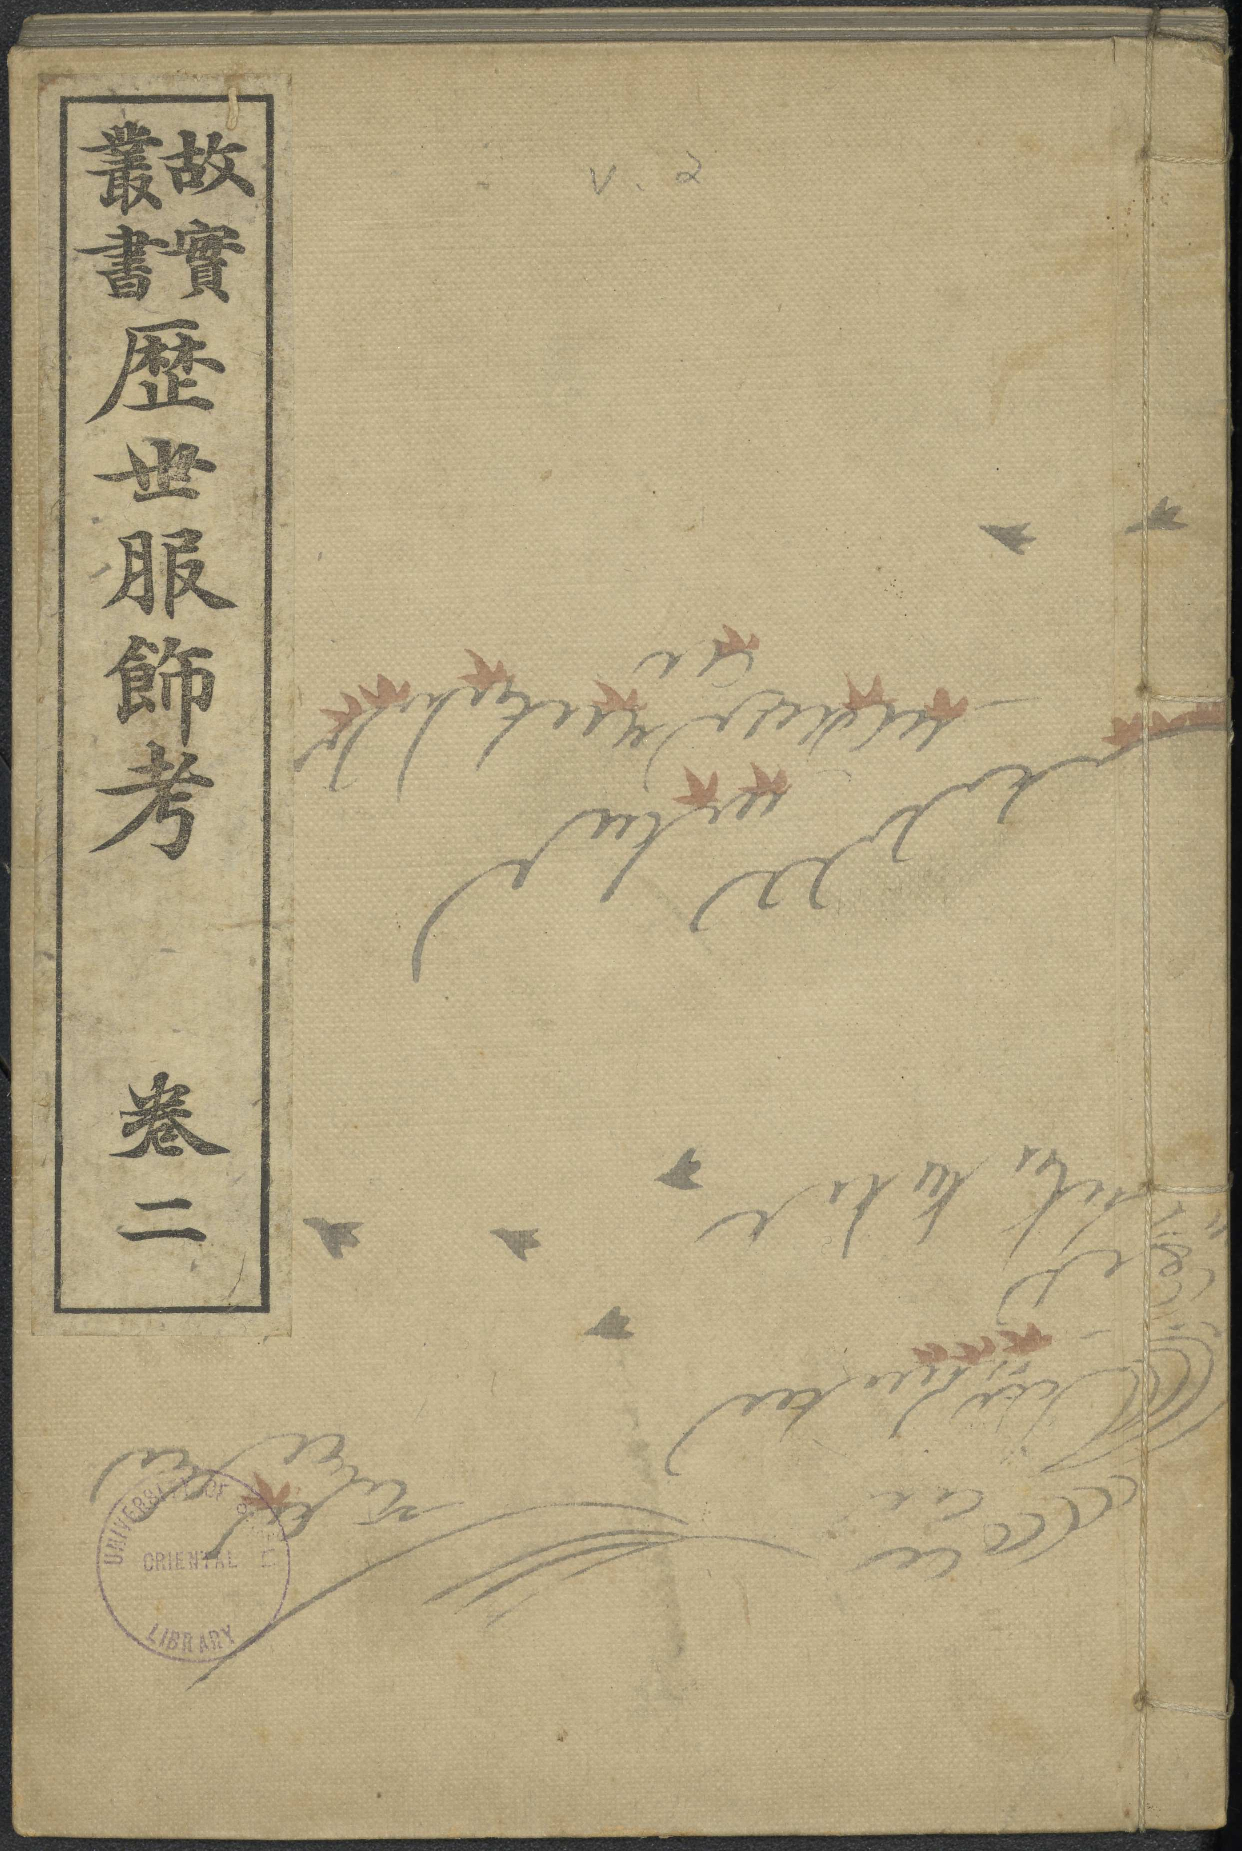 故實
叢書
歴世服飾考
卷二
v. 2
UNIVERSITY OF
ORIENTAL
LIBRARY